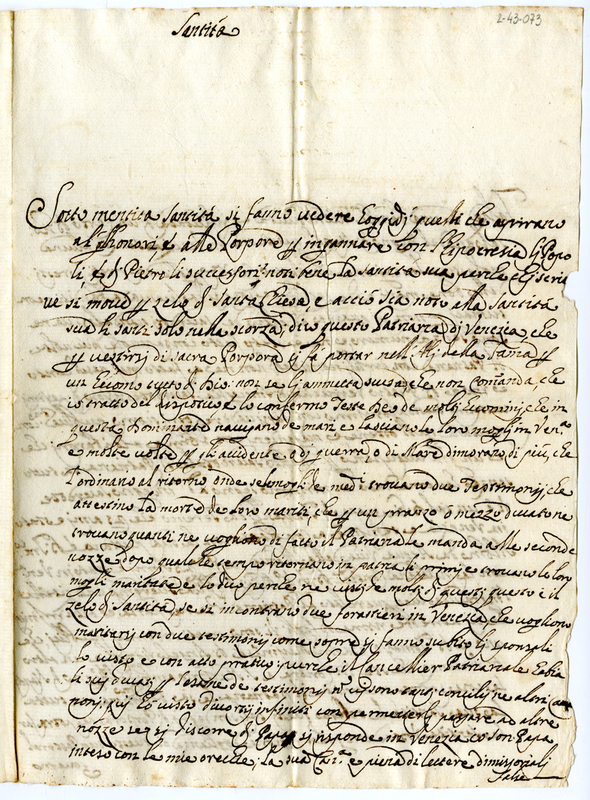 2-43-073
Santità
Sotto mentita santità si fanno vedere hoggidi quelli che aspirano
al honori, e alle Porpore p ingannare con l'hipocresia li Popo
li, e di Pietro li successori: non tiene la santità sua perche chi scri
ve si move p zelo di Santa Chiesa, e acciò sia noto alla santità
sua li santi solo nella scorza; dico questo Patriarca di Venezia, che
p vestirsi di sacra Porpora si fa portar nell' della Fama p
un huomo tutto di Dio: non se li ammetta scusa, che non comanda, che
tratto del dispotico, e lo confermo Teste de molti huomini che in
questa Dominante navigano de mari e lasciano le loro mogli in Ven.a
e molte volte p accidente, o di guerra, o di Mare dimorano di più, che
l'ordinario al ritorno onde se le mogli de med.i trovano due Testimonij che
attestino la morte de loro mariti, che p un pranzo o mezzo ducatone
trovano quanti ne vogliono di fatto il Patriarca le manda alle seconde
nozze, dopo qualche tempo ritornano in patria li primi e trovano le loro
mogli maritate e lo dico perche ne visti molti di questi questo è il
zelo di Santità, se si incontrano due forastieri in Venezia che vogliono
maritarsi con due testimonij come sopra si fanno subito li sponsali
lo visto e con atto pratico; perche il Cancellier Patriarcale habia
li suoi ducati p l'esame de testimonij n. vi sono tanti concilij ne altri
lo visto divortij infiniti con permetterli passare ad altre
nozze se si discorre di Papa si risponde in Venezia son Papa
inteso con le mie orecchie; la sua Can.a e piena di lettere dimissoriali
false